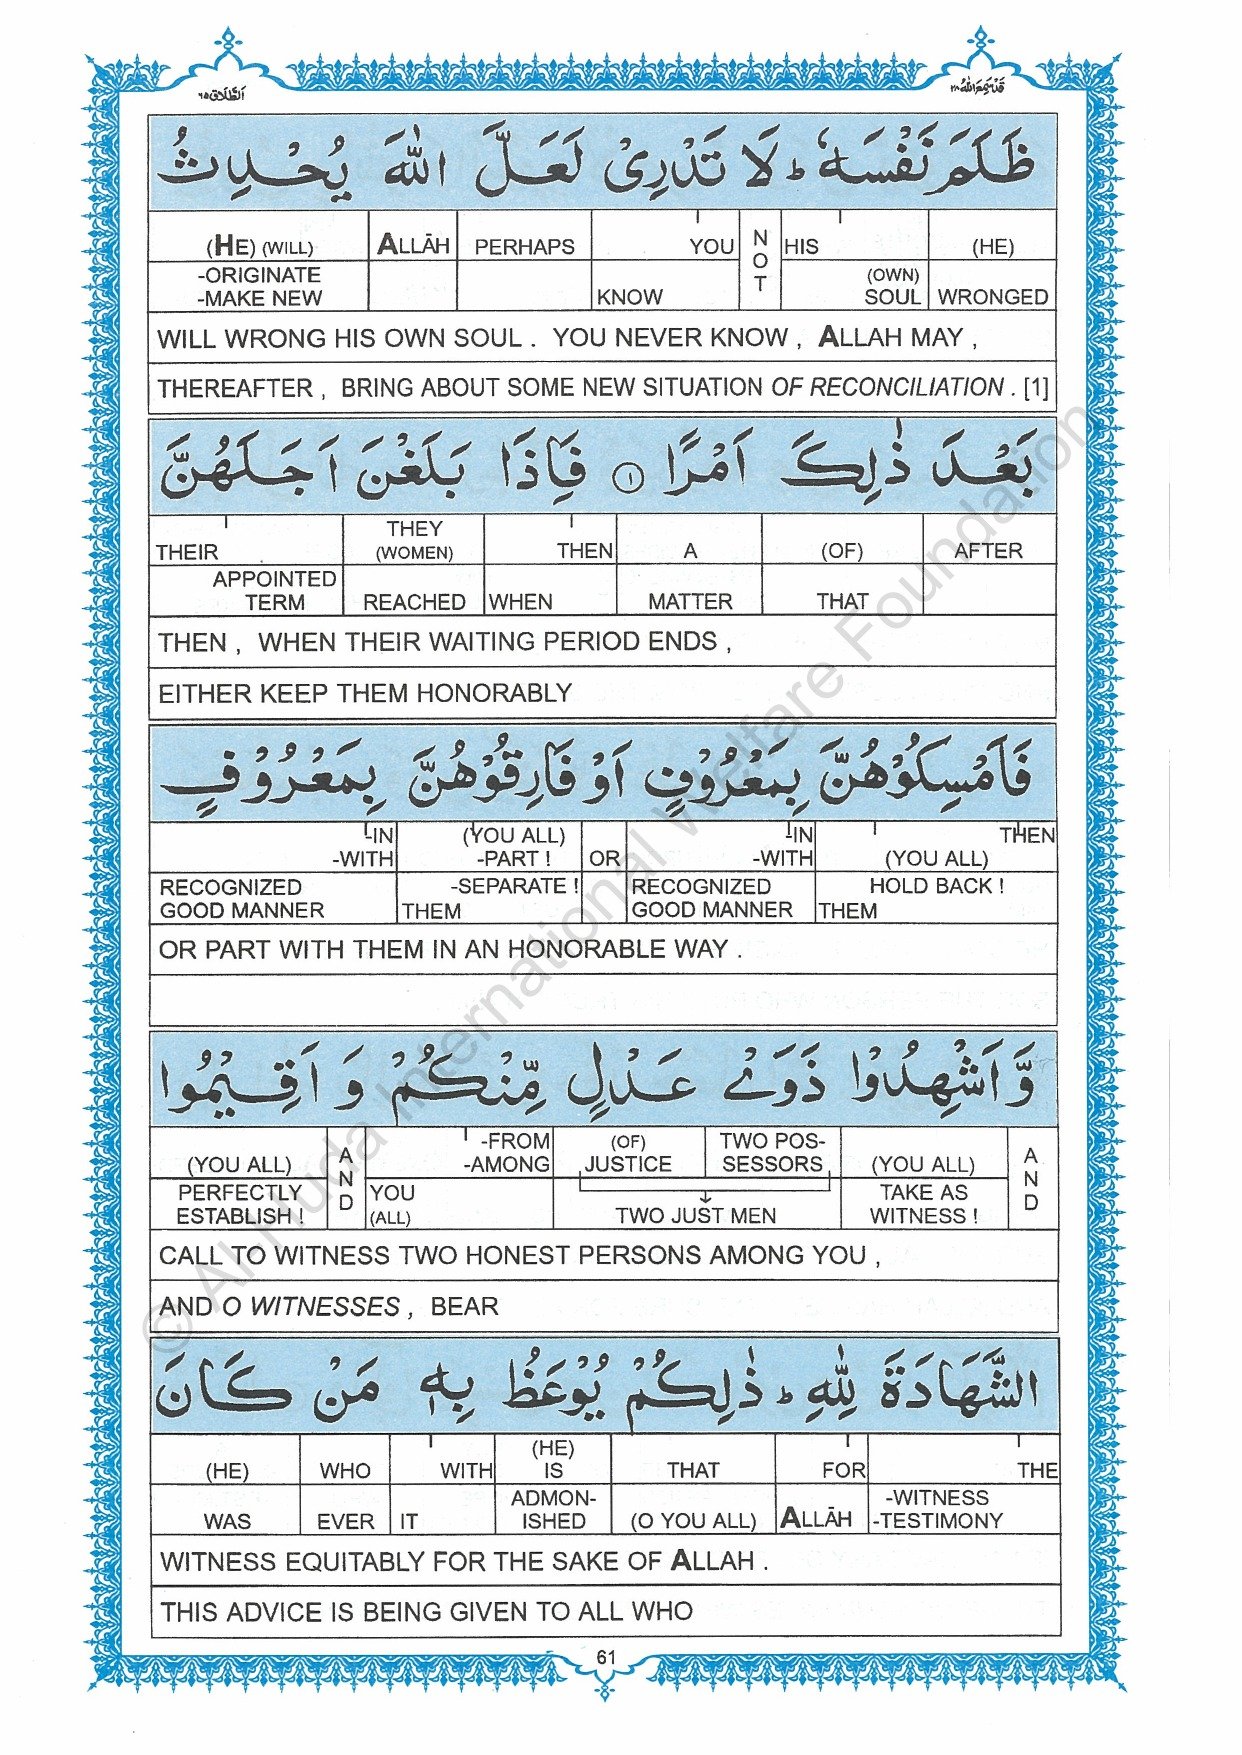 اَلطَّلَاق ٦٥
قَدْ سَمِعَ اللّٰهُ ٢٨
ظَلَمَ نَفْسَهٗ ؕ لَا تَدْرِىْ لَعَلَّ اللّٰهَ يُحْدِثُ
(HE) (WILL) ALLĀH PERHAPS YOU NOT HIS (HE)
-ORIGINATE (OWN)
-MAKE NEW KNOW SOUL WRONGED
WILL WRONG HIS OWN SOUL . YOU NEVER KNOW , ALLAH MAY ,
THEREAFTER , BRING ABOUT SOME NEW SITUATION OF RECONCILIATION . [1]
بَعْدَ ذٰلِكَ اَمْرًا ١ فَاِذَا بَلَغْنَ اَجَلَهُنَّ
THEY
THEIR (WOMEN) THEN A (OF) AFTER
APPOINTED
TERM REACHED WHEN MATTER THAT
THEN , WHEN THEIR WAITING PERIOD ENDS ,
EITHER KEEP THEM HONORABLY
فَاَمْسِكُوْهُنَّ بِمَعْرُوْفٍ اَوْ فَارِقُوْهُنَّ بِمَعْرُوْفٍ
-IN (YOU ALL) -IN THEN
-WITH -PART ! OR -WITH (YOU ALL)
RECOGNIZED -SEPARATE ! RECOGNIZED HOLD BACK !
GOOD MANNER THEM GOOD MANNER THEM
OR PART WITH THEM IN AN HONORABLE WAY .
وَّ اَشْهِدُوْا ذَوَىْ عَدْلٍ مِّنْكُمْ وَ اَقِيْمُوا
-FROM (OF) TWO POS-
(YOU ALL) AND -AMONG JUSTICE SESSORS (YOU ALL) AND
PERFECTLY YOU TAKE AS
ESTABLISH ! (ALL) TWO JUST MEN WITNESS !
CALL TO WITNESS TWO HONEST PERSONS AMONG YOU ,
AND O WITNESSES , BEAR
الشَّهَادَةَ لِلّٰهِ ؕ ذٰلِكُمْ يُوْعَظُ بِهٖ مَنْ كَانَ
(HE)
(HE) WHO WITH IS THAT FOR THE
ADMON- -WITNESS
WAS EVER IT ISHED (O YOU ALL) ALLĀH -TESTIMONY
WITNESS EQUITABLY FOR THE SAKE OF ALLAH .
THIS ADVICE IS BEING GIVEN TO ALL WHO
61
© Al-Huda International Welfare Foundation